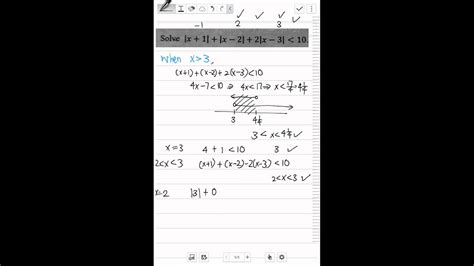 -1 2 3
Solve |x + 1| + |x − 2| + 2|x − 3| < 10.
When x>3,
(x+1)+(x-2)+2(x-3)<10
4x-7<10 ⇒ 4x<17 ⇒ x<17/4=4¼
3 4¼
3<x<4¼ ✓
x=3 4+1<10 3 ✓
2<x<3 (x+1)+(x-2)-2(x-3)<10
2<x<3 ✓
x=2 |3|+0